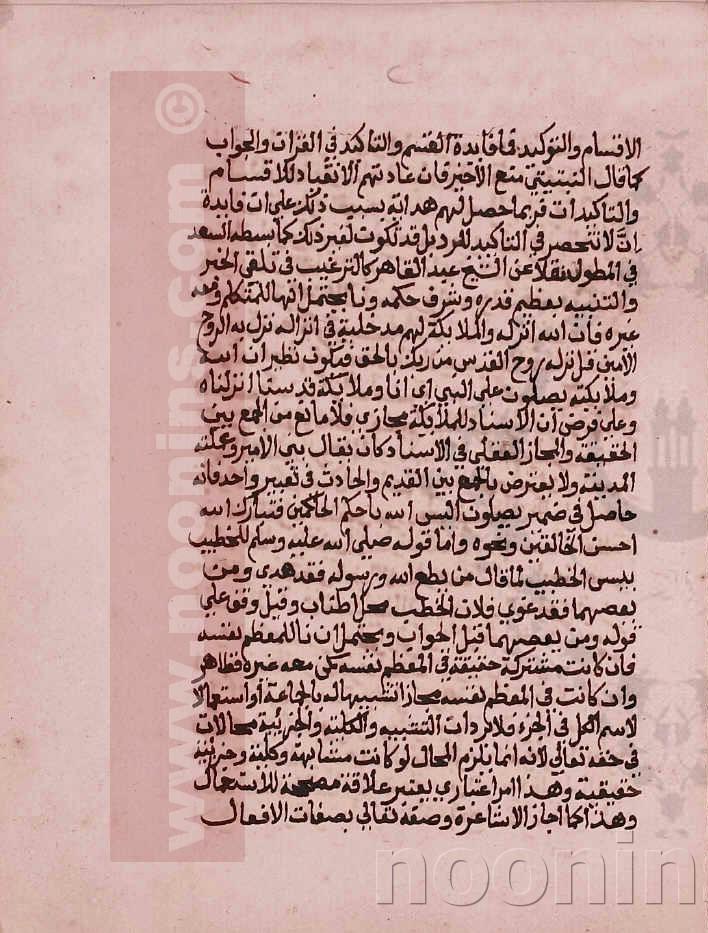 الاقسام والتوكيد فما فايدة القسم والتاكيد في القران والجواب
كما قال التتيتي منع الاخير فان عادتهم الانقياد للاقسام
والتاكيدات فربما حصل لهم هداية بسبب ذلك على ان فايدة
انّ لا تنحصر في التاكيد للرد بل قد تكون لغير ذلك كما بسطه السعد
في المطول نقلا عن الشيخ عبد القاهر كالترغيب في تلقي الخبر
والتنبيه بعظيم قدره وشرف حكمه ونا يحتمل انها للمتكلم ومعه
غيره فان الله انزله والملايكة لهم مدخلية في انزاله نزل به الروح
الامين قل نزله روح القدس من ربك بالحق فيكون نظير ان الله
وملايكته يصلون على النبي اي انا وملايكة قدسنا انزلناه
وعلى فرض ان الاسناد للملايكة مجازي فلا مانع من الجمع بين
الحقيقة والمجاز العقلي في الاسناد كان يقال بنى الامير وعملته
المدينة ولا يعترض بالجمع بين القديم والحادث في تعبير واحد فانه
حاصل في ضمير يصلون اليس الله باحكم الحاكمين فتبارك الله
احسن الخالقين ونحوه واما قوله صلي الله عليه وسلم للخطيب
بيس الخطيب لما قال من يطع الله ورسوله فقد هدى ومن
يعصهما فقد غوي فلان الخطب محل اطناب وقيل وقف على
قوله ومن يعصهما قبل الجواب ويحتمل ان نا للمعظم نفسه
فان كانت مشتركة حقيقة في المعظم نفسه على معه غيره فظاهر
وان كانت في المعظم نفسه مجازا تشبيها له بالجماعة او استعمالا
لاسم الكل في الجزء فلا يرد ان التشبيه والكلية والجزيية محالات
في حقه تعالي لانه انما يلزم المحال لو كانت مشابهة وكلية وجزيية
حقيقية وهذا امر اعتباري يعتبر علاقة مصححة للاستعمال
وهذا كما اجاز الاشاعرة وصفه تعالي بصفات الافعال
www.noonins.com ©
noonins